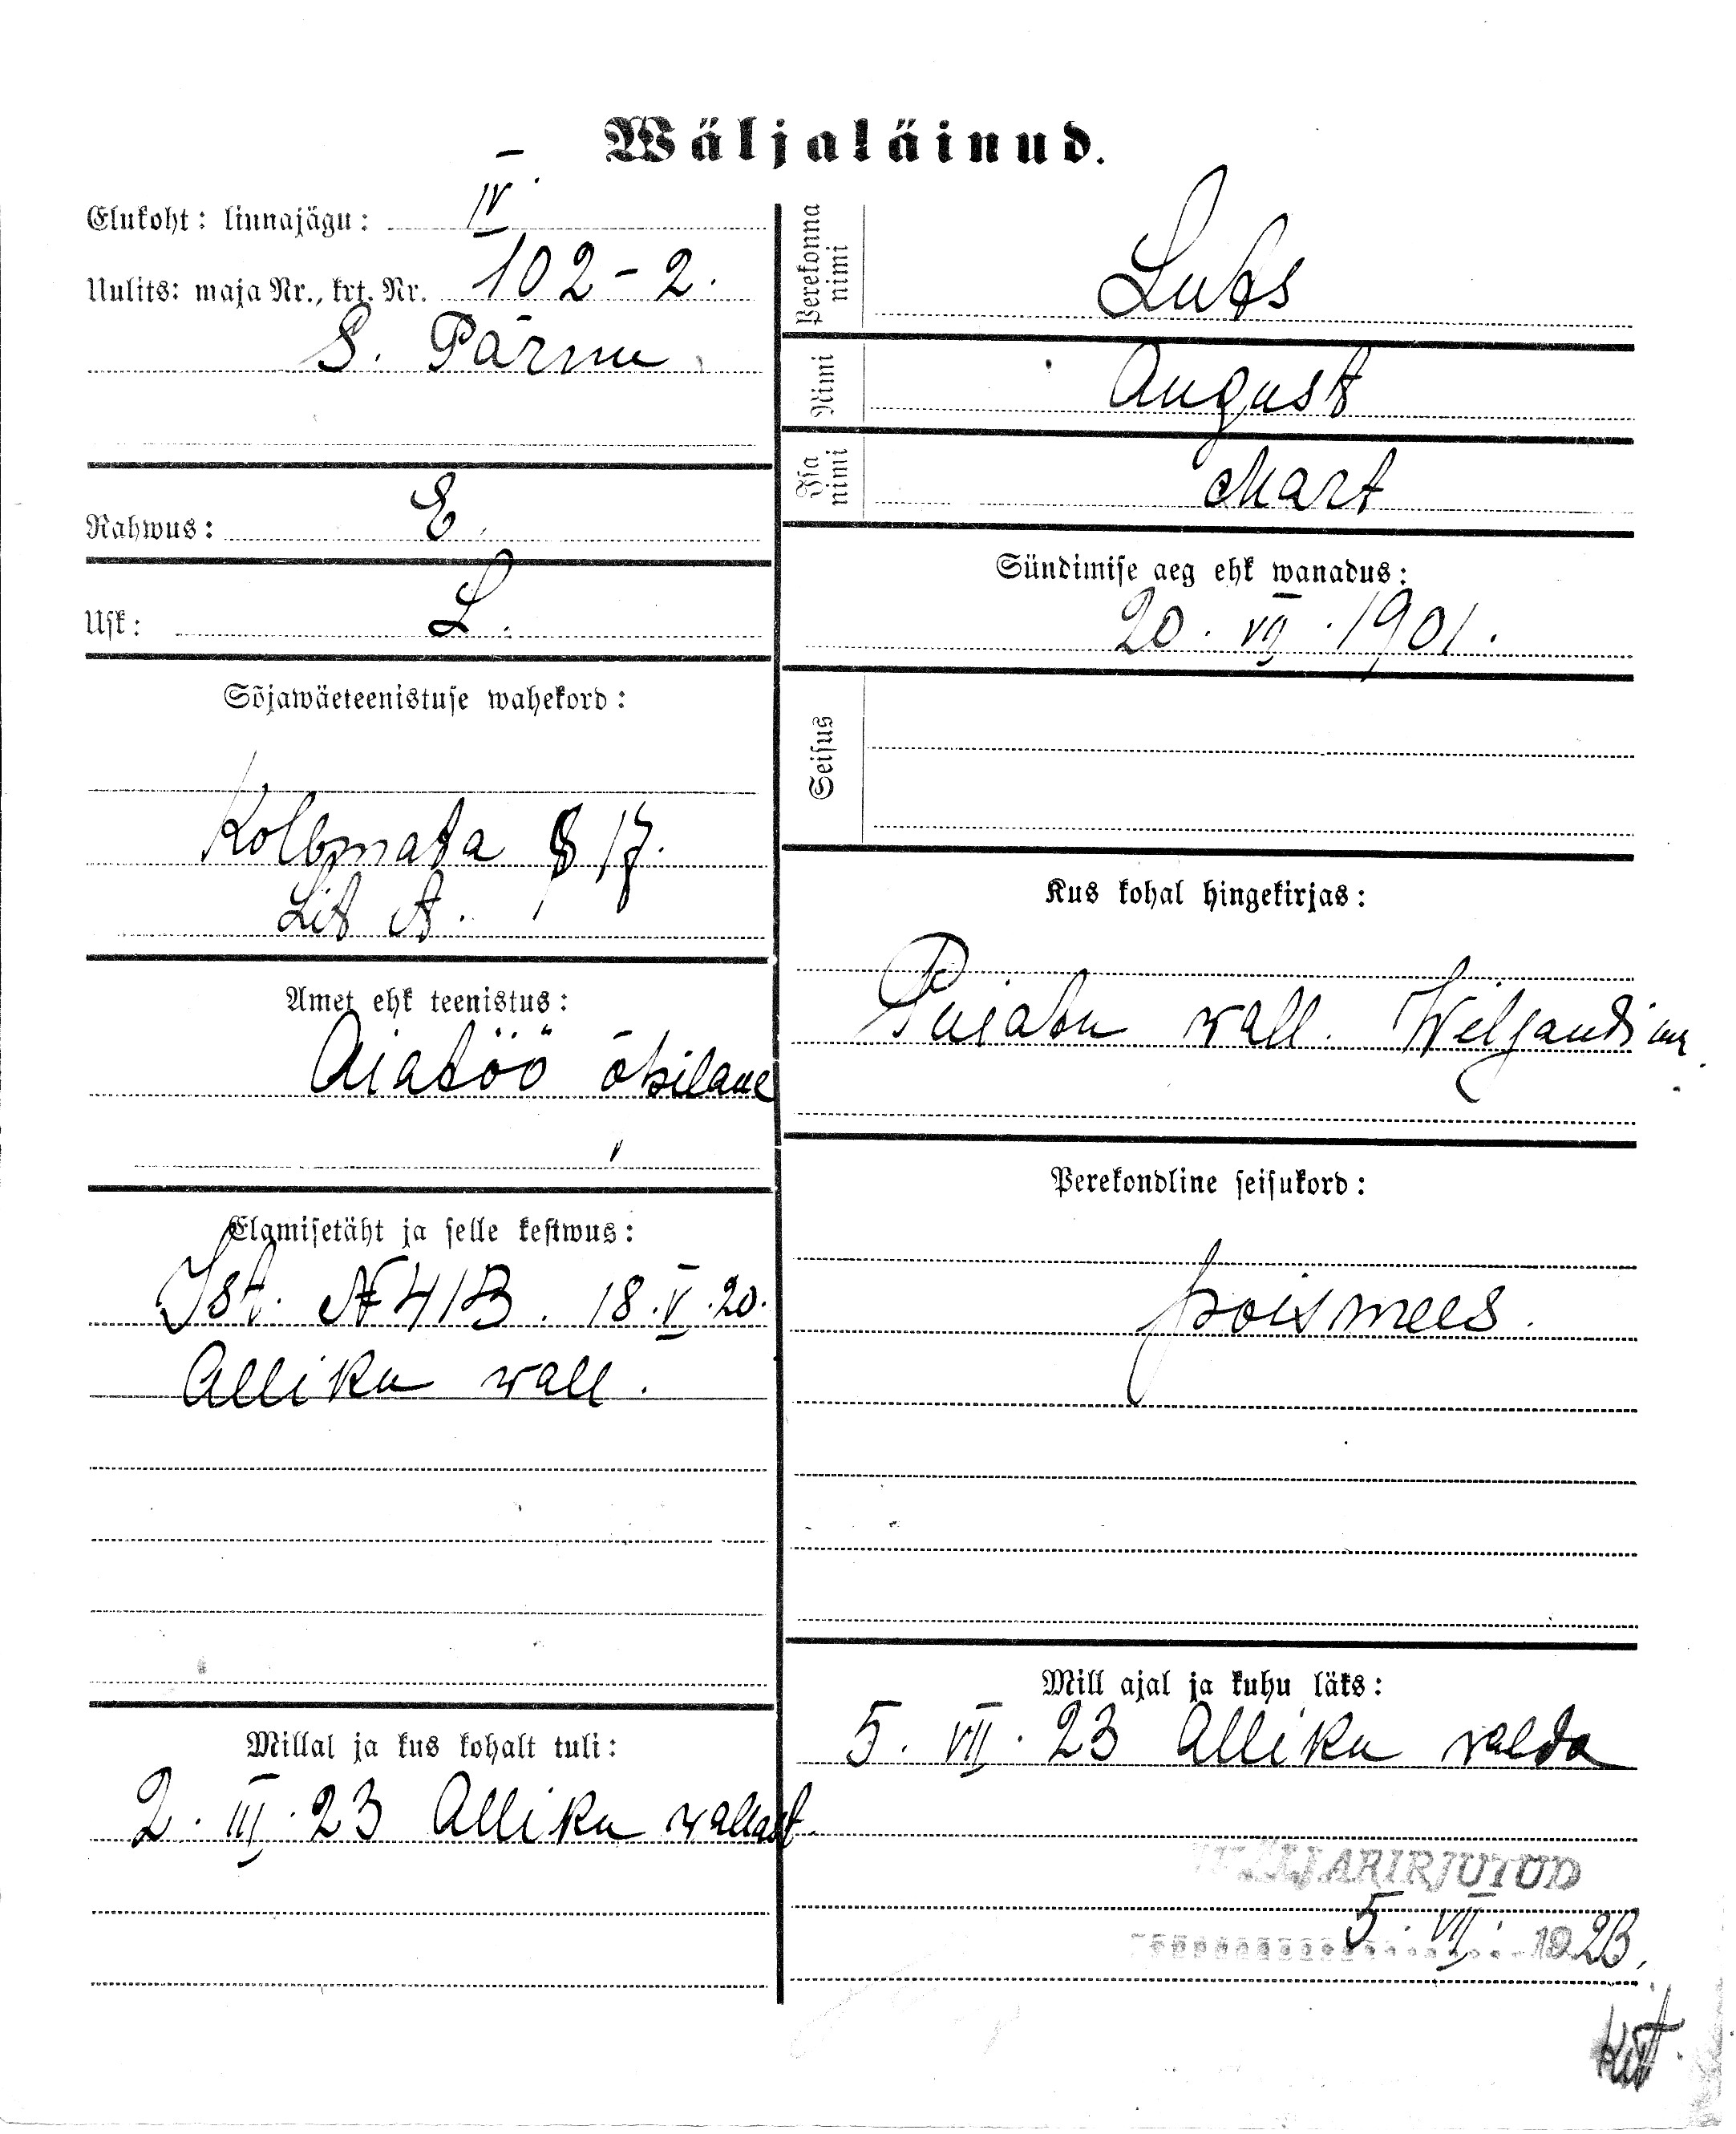 Wäljaläinud.
Elukoht: linnajägu: IV
Uulits: maja Nr., krt. Nr. 102-2.
S. Pärnu
Rahwus: E.
Usk: L.
Sõjawäeteenistuse wahekord:
Kolbmata § 17.
Lit A.
Amet ehk teenistus:
Aiatöö õpilane
Elamisetäht ja selle kestwus:
Ist. № 413. 18.V.20.
Alliku wall.
Millal ja kus kohalt tuli:
2. III. 23 Alliku wallast.
Perekonna nimi
Luts
Nimi
August
Isa nimi
Mart
Sündimise aeg ehk wanadus:
20. VII. 1901.
Seisus
Kus kohal hingekirjas:
Puiatu wall. Wiljandi m.
Perekondline seisukord:
poismees.
Mill ajal ja kuhu läks:
5. VII. 23 Alliku walda
5. VII. 1923.